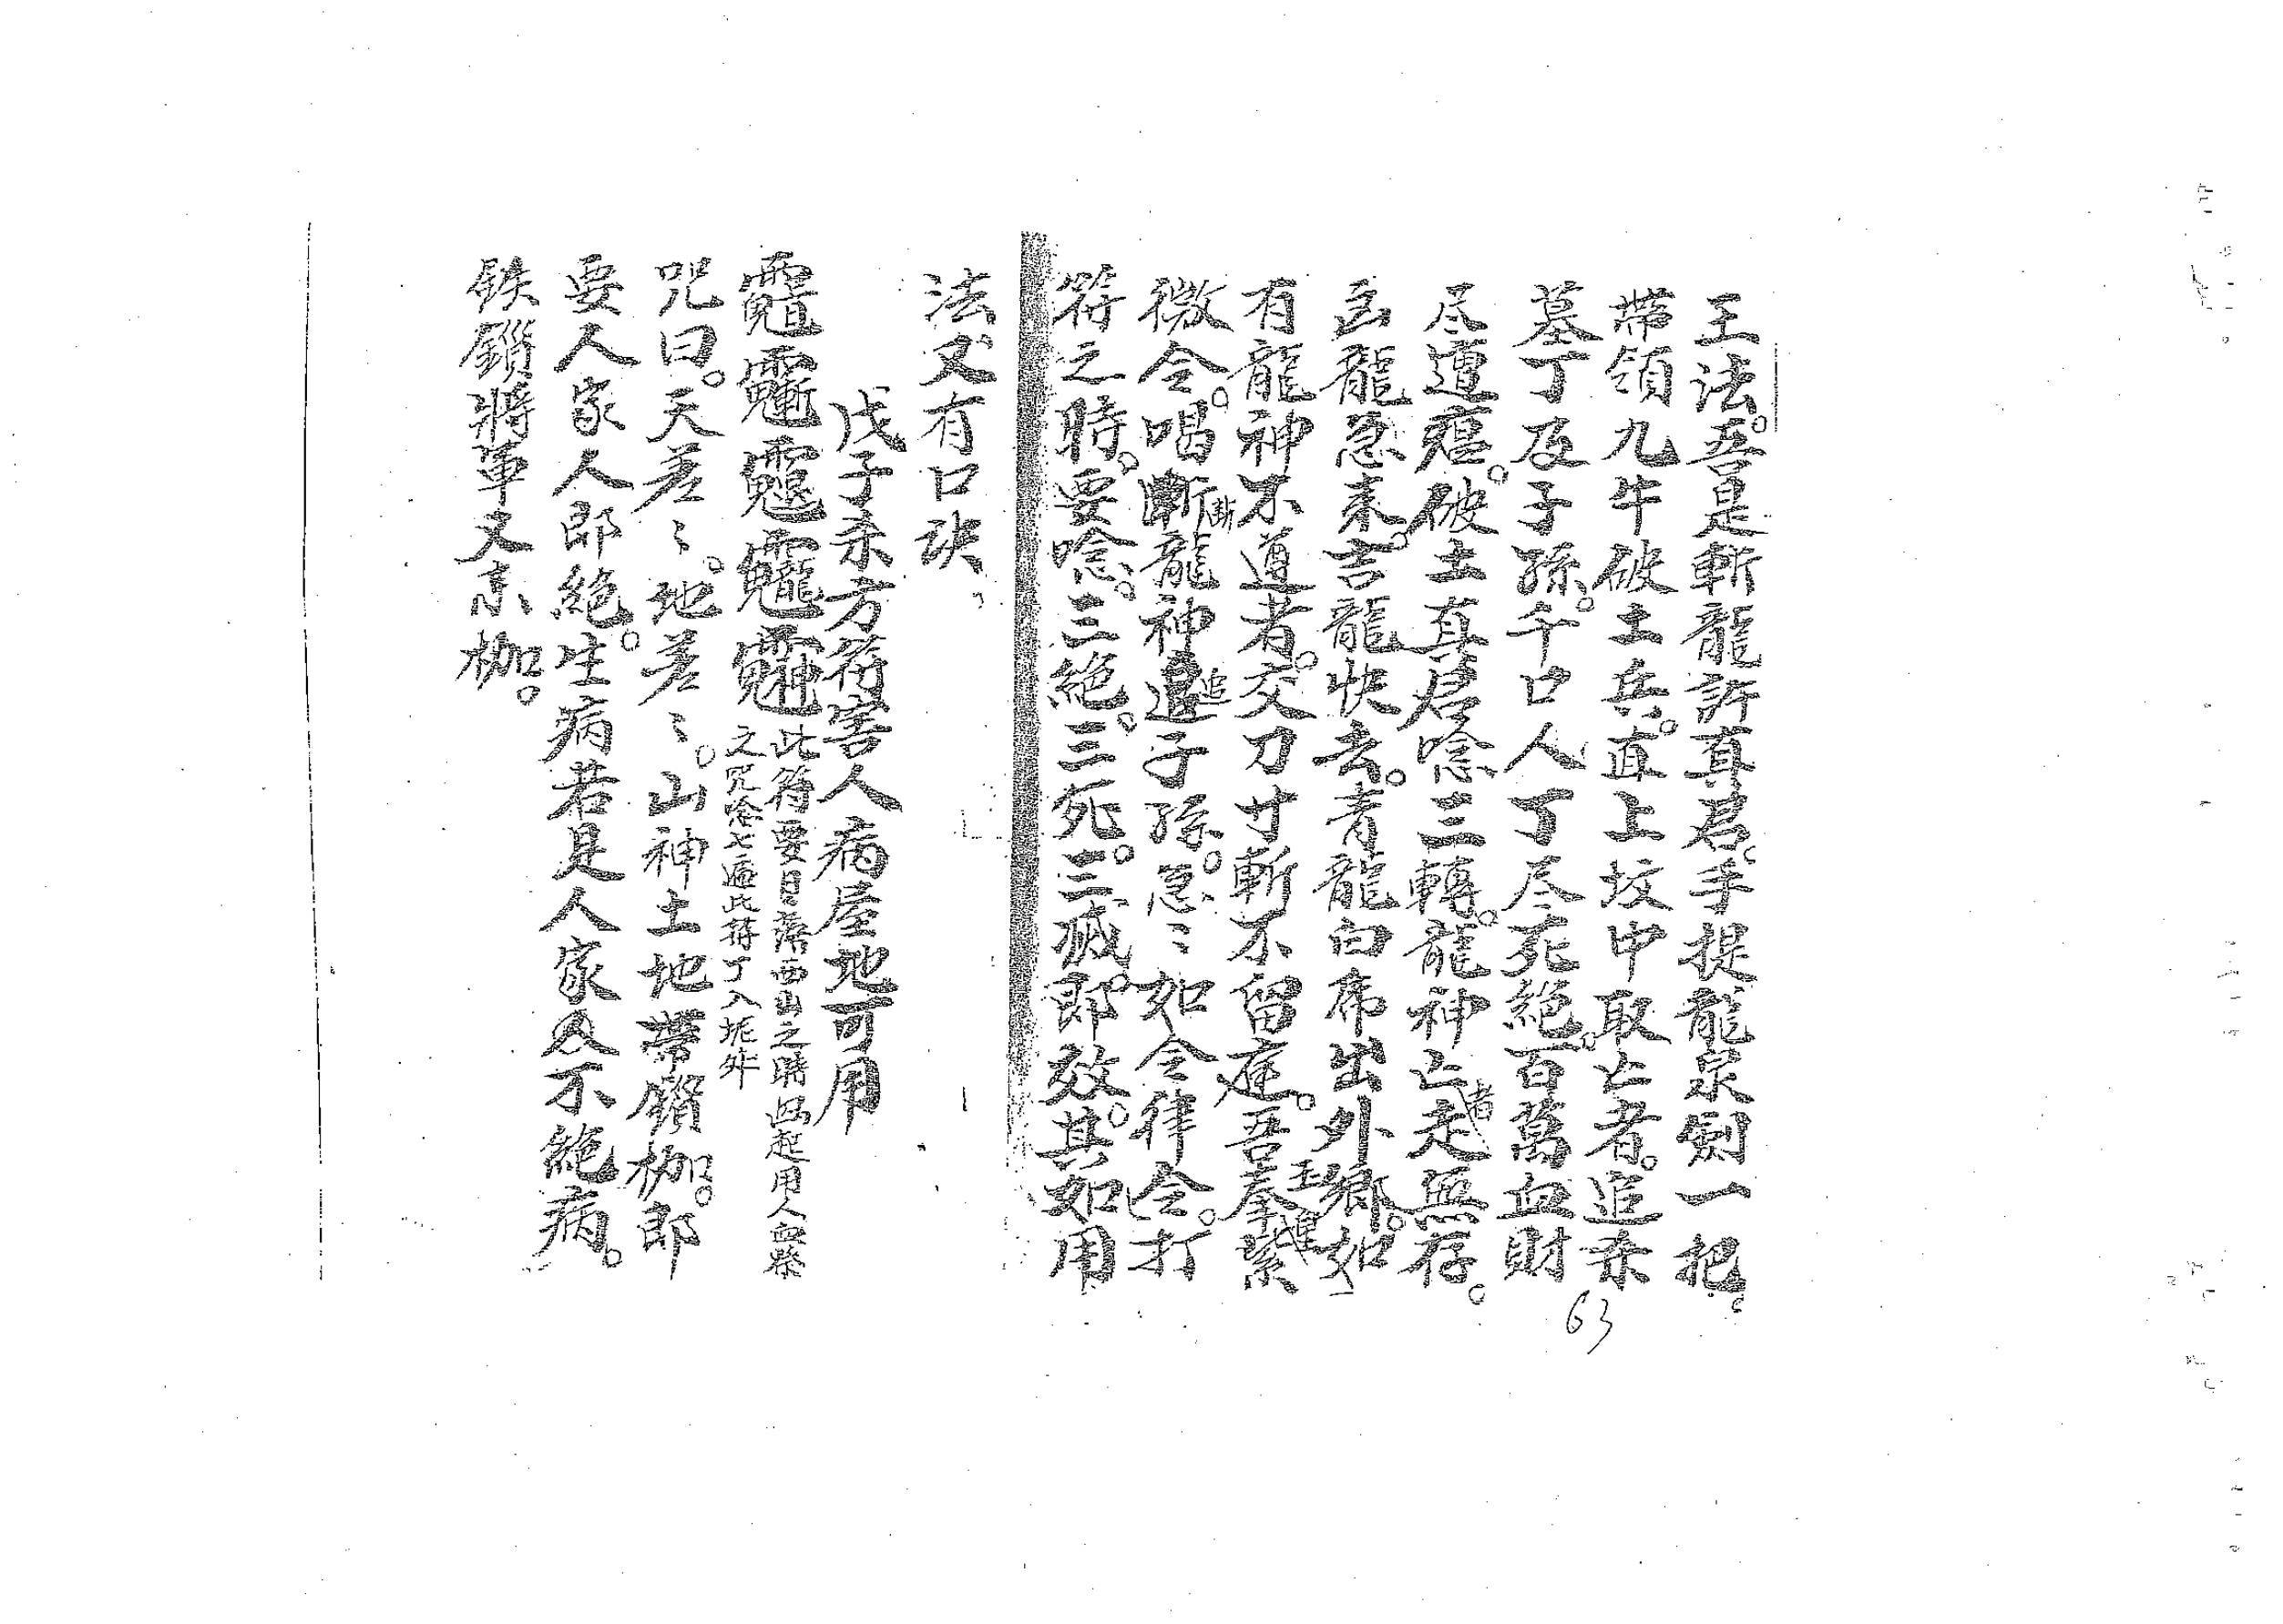 王法。吾是斬龍許真君。手提龍泉劍一把。
帶領九牛破土兵。直上坟中取亡者。追杀
墓丁及子孫。千口人丁尽死絕。百萬血財
尽遭瘟。破土真君唸三轉。龍神亡走者無存。
凶龍急来。吉龍快去。青龍白虎出外鄉。如
有龍神不遵者。交刀寸斬不留庭。吾奉
微令。唱斬龍神追子孫。急〻如令律令。打
符之時。要唸。三絕。三死。三滅。即效。其如用
法又有口訣
戊子杀方符害人病屋地可用
此符要日落西山之時 起用人血祭
之咒唸七遍此符丁入坭外
咒曰。天差〻。地差〻。山神土地帶鎖枷。即
要人家人即絕。生病若是人家人不絕病。
鉄鎖將軍又来枷。
63